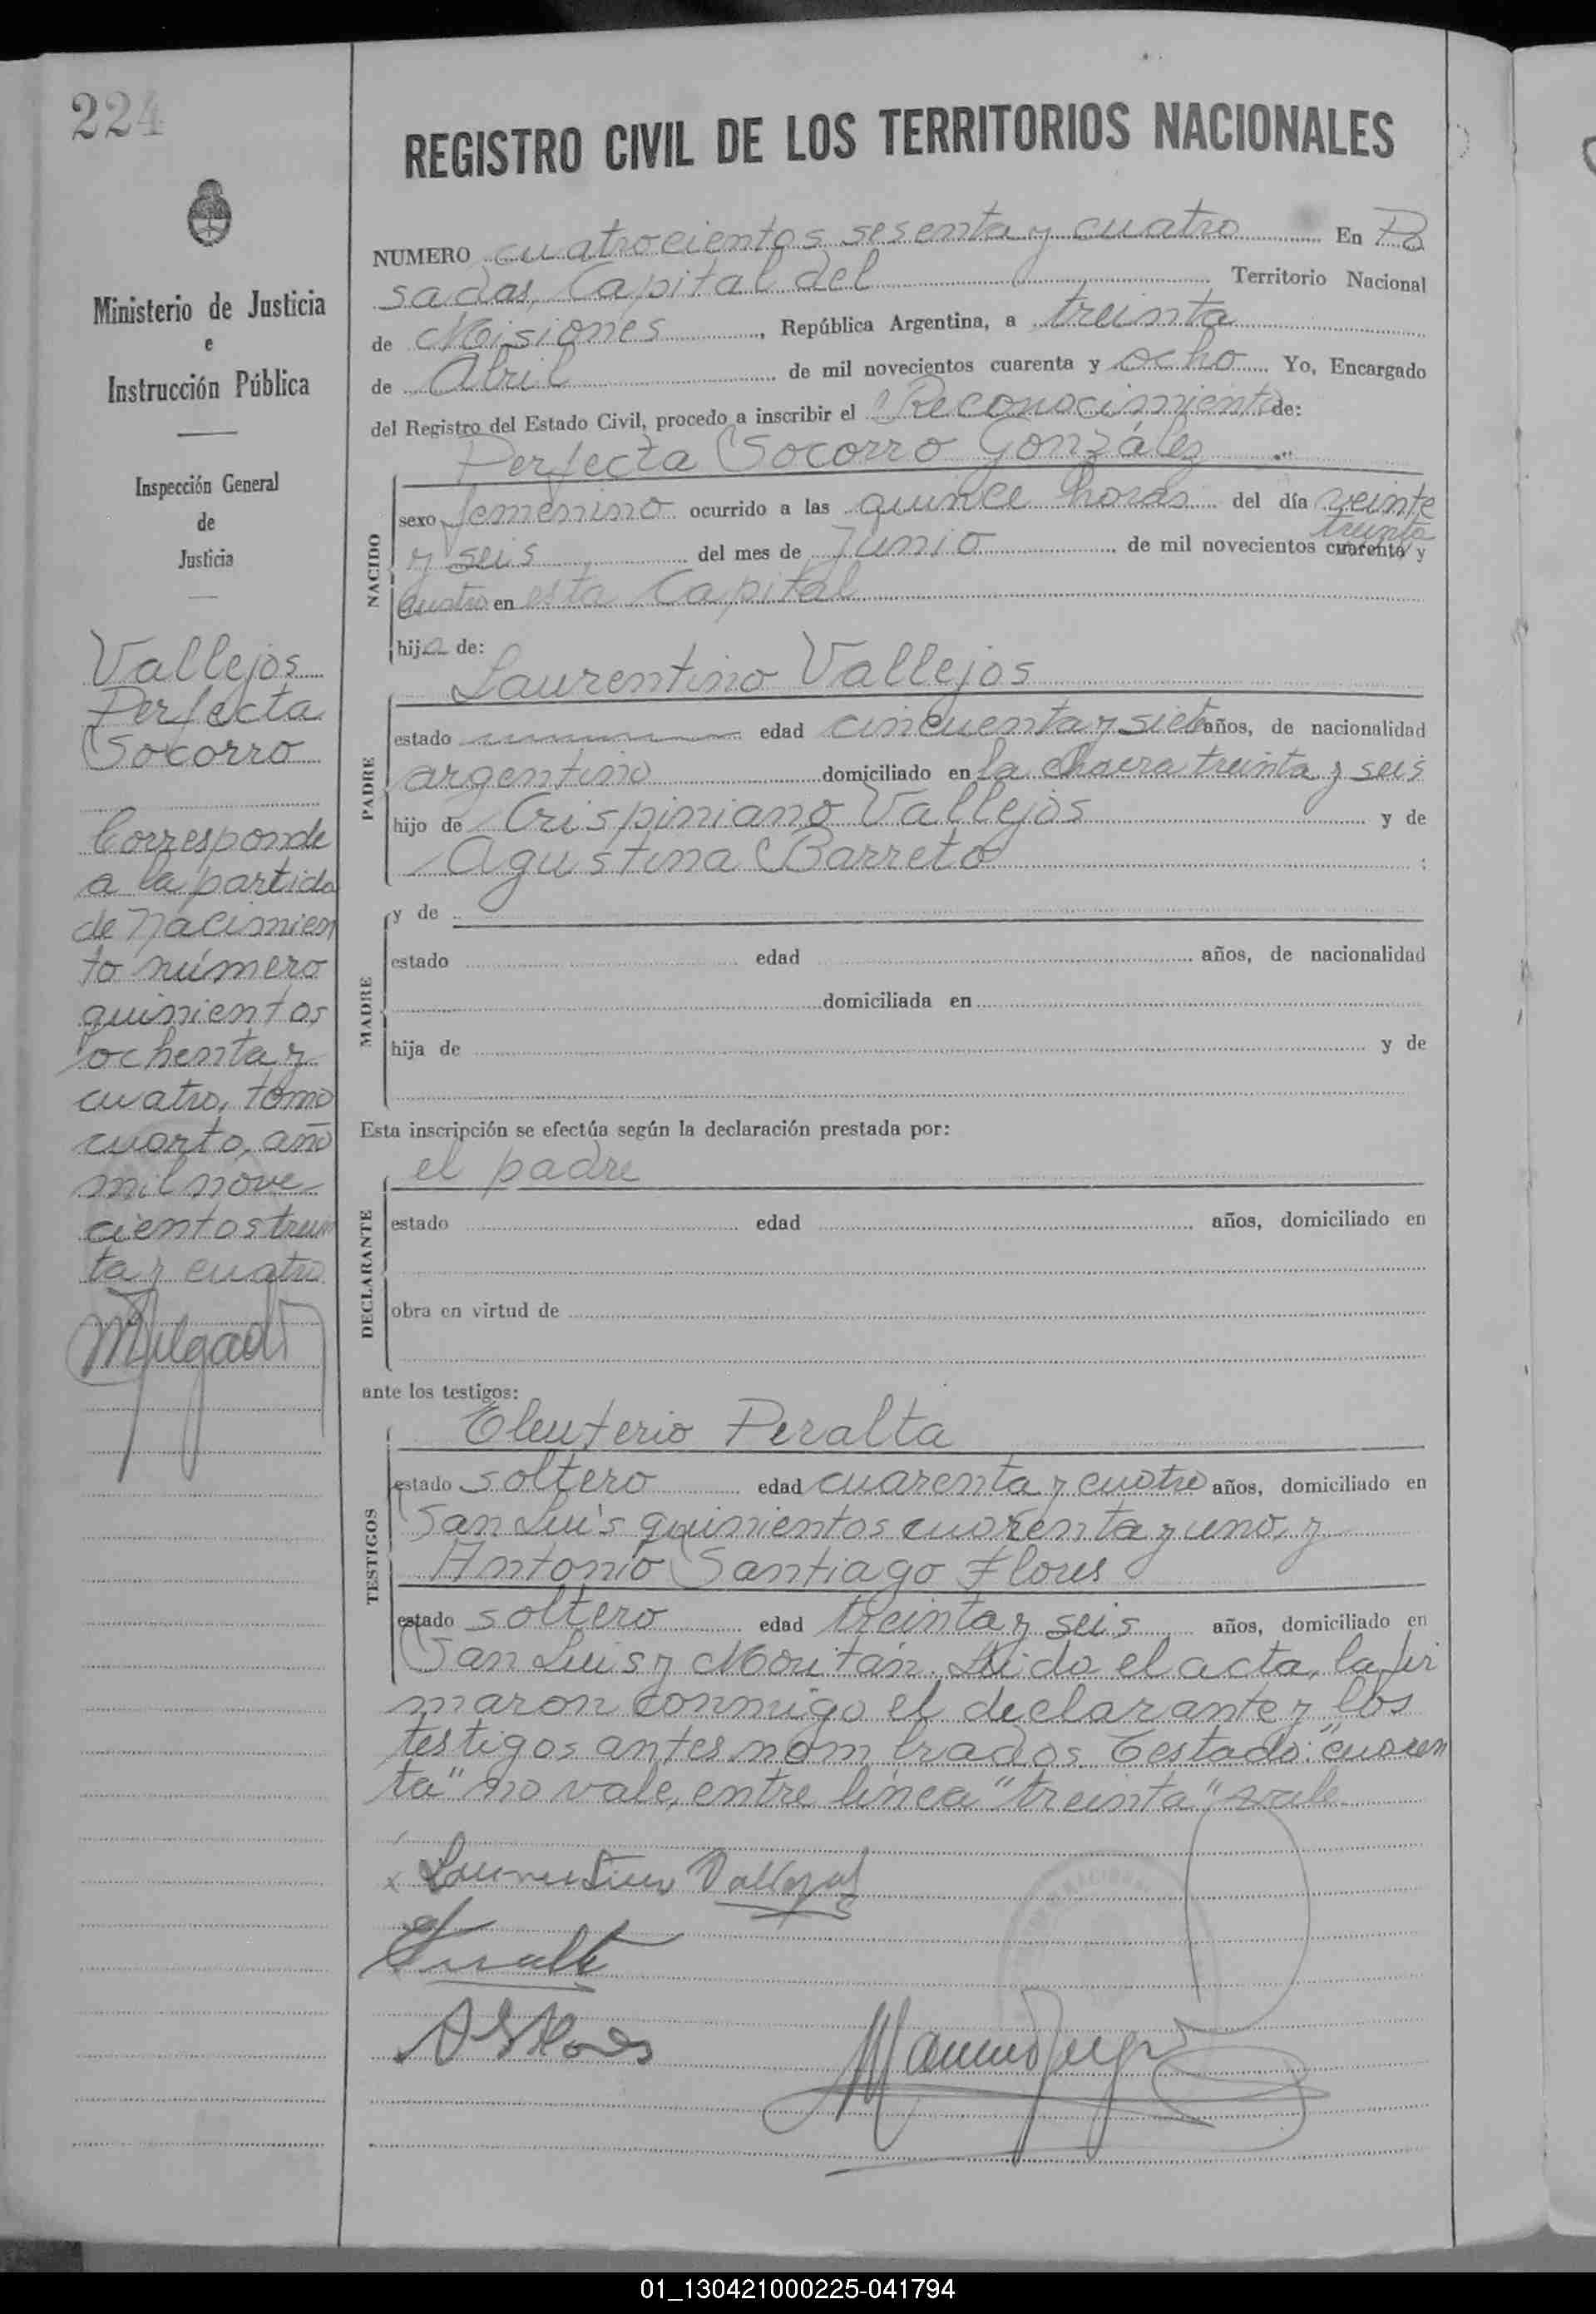 224
Ministerio de Justicia
e
Instrucción Pública
Inspección General
de
Justicia
Vallejos
Perfecta
Socorro
Corresponde
a la partida
de Nacimien
to número
quinientos
ochenta y
cuatro, tomo
cuarto, año
mil nove
cientos trein
ta y cuatro
REGISTRO CIVIL DE LOS TERRITORIOS NACIONALES
NUMERO cuatrocientos sesenta y cuatro En Po
sadas, Capital del Territorio Nacional
de Misiones, República Argentina, a treinta
de Abril de mil novecientos cuarenta y ocho Yo, Encargado
del Registro del Estado Civil, procedo a inscribir el Reconocimiento de:
Perfecta Socorro González
NACIDO
sexo femenino ocurrido a las quince horas del día veinte
treinta
y seis del mes de Junio de mil novecientos cuarenta y
cuatro en esta Capital
hija de:
Laurentino Vallejos
PADRE
estado edad cincuenta y siete años, de nacionalidad
argentino domiciliado en la chacra treinta y seis
hijo de Crispiniano Vallejos y de
Agustina Barreto :
MADRE
y de
estado edad años, de nacionalidad
domiciliada en
hija de y de
Esta inscripción se efectúa según la declaración prestada por:
el padre
DECLARANTE
estado edad años, domiciliado en
obra en virtud de
ante los testigos:
Eleuterio Peralta
TESTIGOS
estado soltero edad cuarenta y cuatro años, domiciliado en
San Luis quinientos cuarenta y uno, y
Antonio Santiago Flores
estado soltero edad treinta y seis años, domiciliado en
San Luis y Moritán. Leido el acta, la fir
maron conmigo el declarante y los
testigos antes nombrados. Testado: "cuaren
ta" no vale, entre línea "treinta" vale.
Laurentino Vallejos
Peralta
A S Flores
01_130421000225-041794